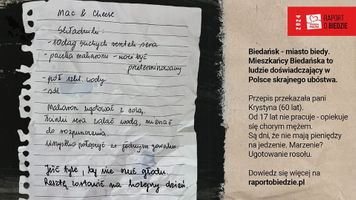 Mac & Cheese
Składniki
- 10dag suchych resztek sera
- paczka makaronu - może być
przeterminowany
- pół szkl. wody
- sól
Makaron ugotować z solą,
Resztki sera zalać wodą, mieszać
do rozpuszczenia
Wszystko połączyć w jednym garnku.
Jeść tyle, by nie czuć głodu
Resztę zostawić na kolejny dzień
2024
RAPORT
O BIEDZIE
Biedańsk - miasto biedy.
Mieszkańcy Biedańska to
ludzie doświadczający w
Polsce skrajnego ubóstwa.
Przepis przekazała pani
Krystyna (60 lat).
Od 17 lat nie pracuje - opiekuje
się chorym mężem.
Są dni, że nie mają pieniędzy
na jedzenie. Marzenie?
Ugotowanie rosołu.
Dowiedz się więcej na
raportobiedzie.pl